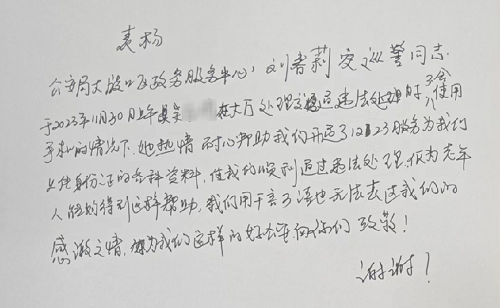 表扬
公安局大厅政务服务中心，刘春莉交巡警同志
于2023年11月30日上午 在大厅处理交通违法处理时 不会使用
手机的情况下，她热情耐心帮助我们开通了12123服务为我们
上传身份证的各种资料，使我们顺利通过违法处理，作为老年
人能够得到这样帮助，我们用千言万语也无法表达我们的
感激之情，为我们这样的好会向你们致敬！
谢谢！